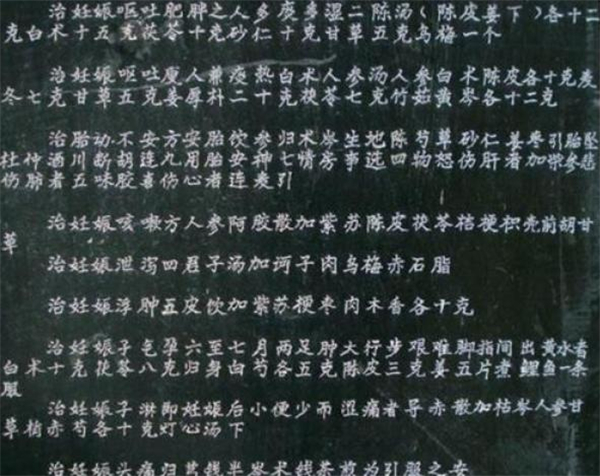 治妊娠呕吐肥胖之人多痰多湿二陈汤(陈皮姜下)各十二
克白术十五克茯苓十克砂仁十克甘草五克乌梅一个
治妊娠呕吐痰人兼痰热白术人参汤人参白术陈皮各十克麦
冬七克甘草五克姜厚朴二十克茯苓七克竹茹黄芩各十二克
治胎动不安方安胎饮参归术芩生地陈芍草砂仁姜枣引胎坠
杜仲酒川断胡连九用胎安神七情房事迷四物怒伤肝者加柴参悲
伤肺者五味胶喜伤心者连麦引
治妊娠咳嗽方人参阿胶散加紫苏陈皮茯苓桔梗枳壳前胡甘
草
治妊娠泄泻四君子汤加诃子肉乌梅赤石脂
治妊娠浮肿五皮饮加紫苏梗枣肉木香各十克
治妊娠子气孕六至七月两足肿大行步艰难脚指间出黄水者
白术十克茯苓八克归身白芍各五克陈皮三克姜五片煮鲤鱼一条
服
治妊娠子淋即妊娠后小便少而涩痛者导赤散加枯芩人参甘
草梢赤芍各十克灯心汤下
治妊娠头痛归芎钱半芩术钱茶煎为引服之